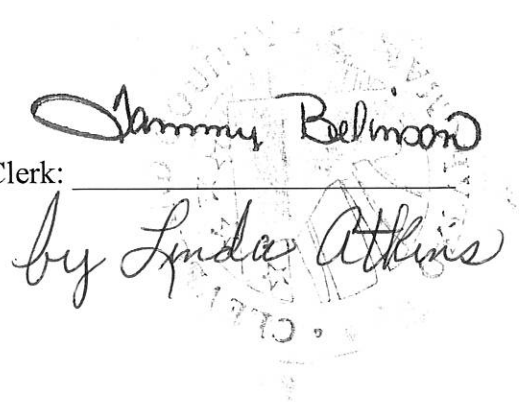 Tammy Belinson
Clerk:
by Linda Atkins